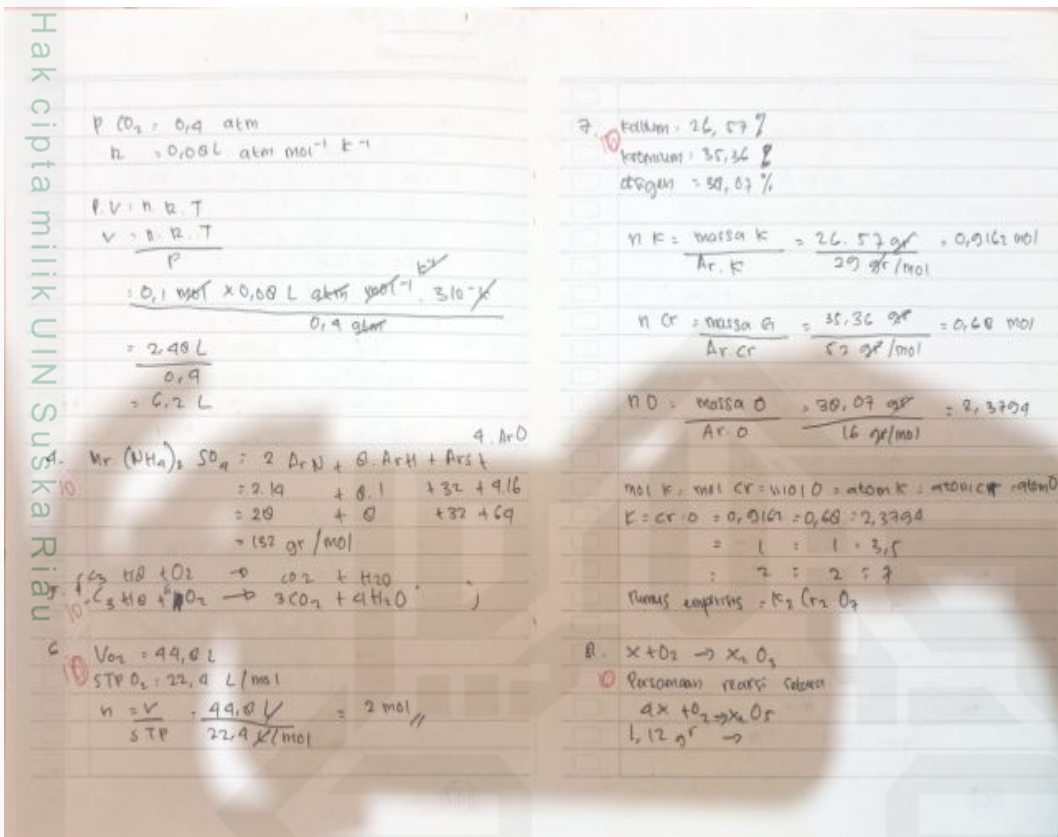 Hak cipta milik UIN Suska Riau
P CO2 = 0,4 atm
R = 0,08 L atm mol-1 K-1
P.V = n.R.T
V = n.R.T
P
= 0,1 mol x 0,08 L atm mol-1 K-1 . 310 K
0,4 atm
= 2.48 L
0,4
= 6,2 L
4. Mr (NH4)2 SO4 = 2 Ar N + 8.Ar H + Ar S + 4.Ar O
10
= 2.14 + 8.1 + 32 + 4.16
= 28 + 8 + 32 + 64
= 132 gr/mol
5. C3 H8 + O2 → CO2 + H2O
10
C3 H8 + O2 → 3CO2 + 4H2O
6. VO2 = 44,8 L
10
STP O2 = 22,4 L/mol
n = V = 44.8 L = 2 mol //
STP 22.4 L/mol
7. kalium = 26,57 %
10
kromium = 35,36 %
oksigen = 38,07 %
n K = massa K = 26.57 gr = 0,9162 mol
Ar. K 29 gr/mol
n Cr = massa Cr = 35,36 gr = 0,68 mol
Ar. Cr 52 gr/mol
n O = massa O = 38,07 gr = 2,3794
Ar. O 16 gr/mol
mol K = mol Cr = mol O = atom K = atom Cr = atom O
K = Cr : O = 0,9162 = 0,68 : 2,3794
= 1 : 1 : 3,5
: 2 : 2 : 7
rumus empiris = K2 Cr2 O7
8. X + O2 → X2 O5
10
Persamaan reaksi setara
4X + O2 → X2 O5
1,12 gr →